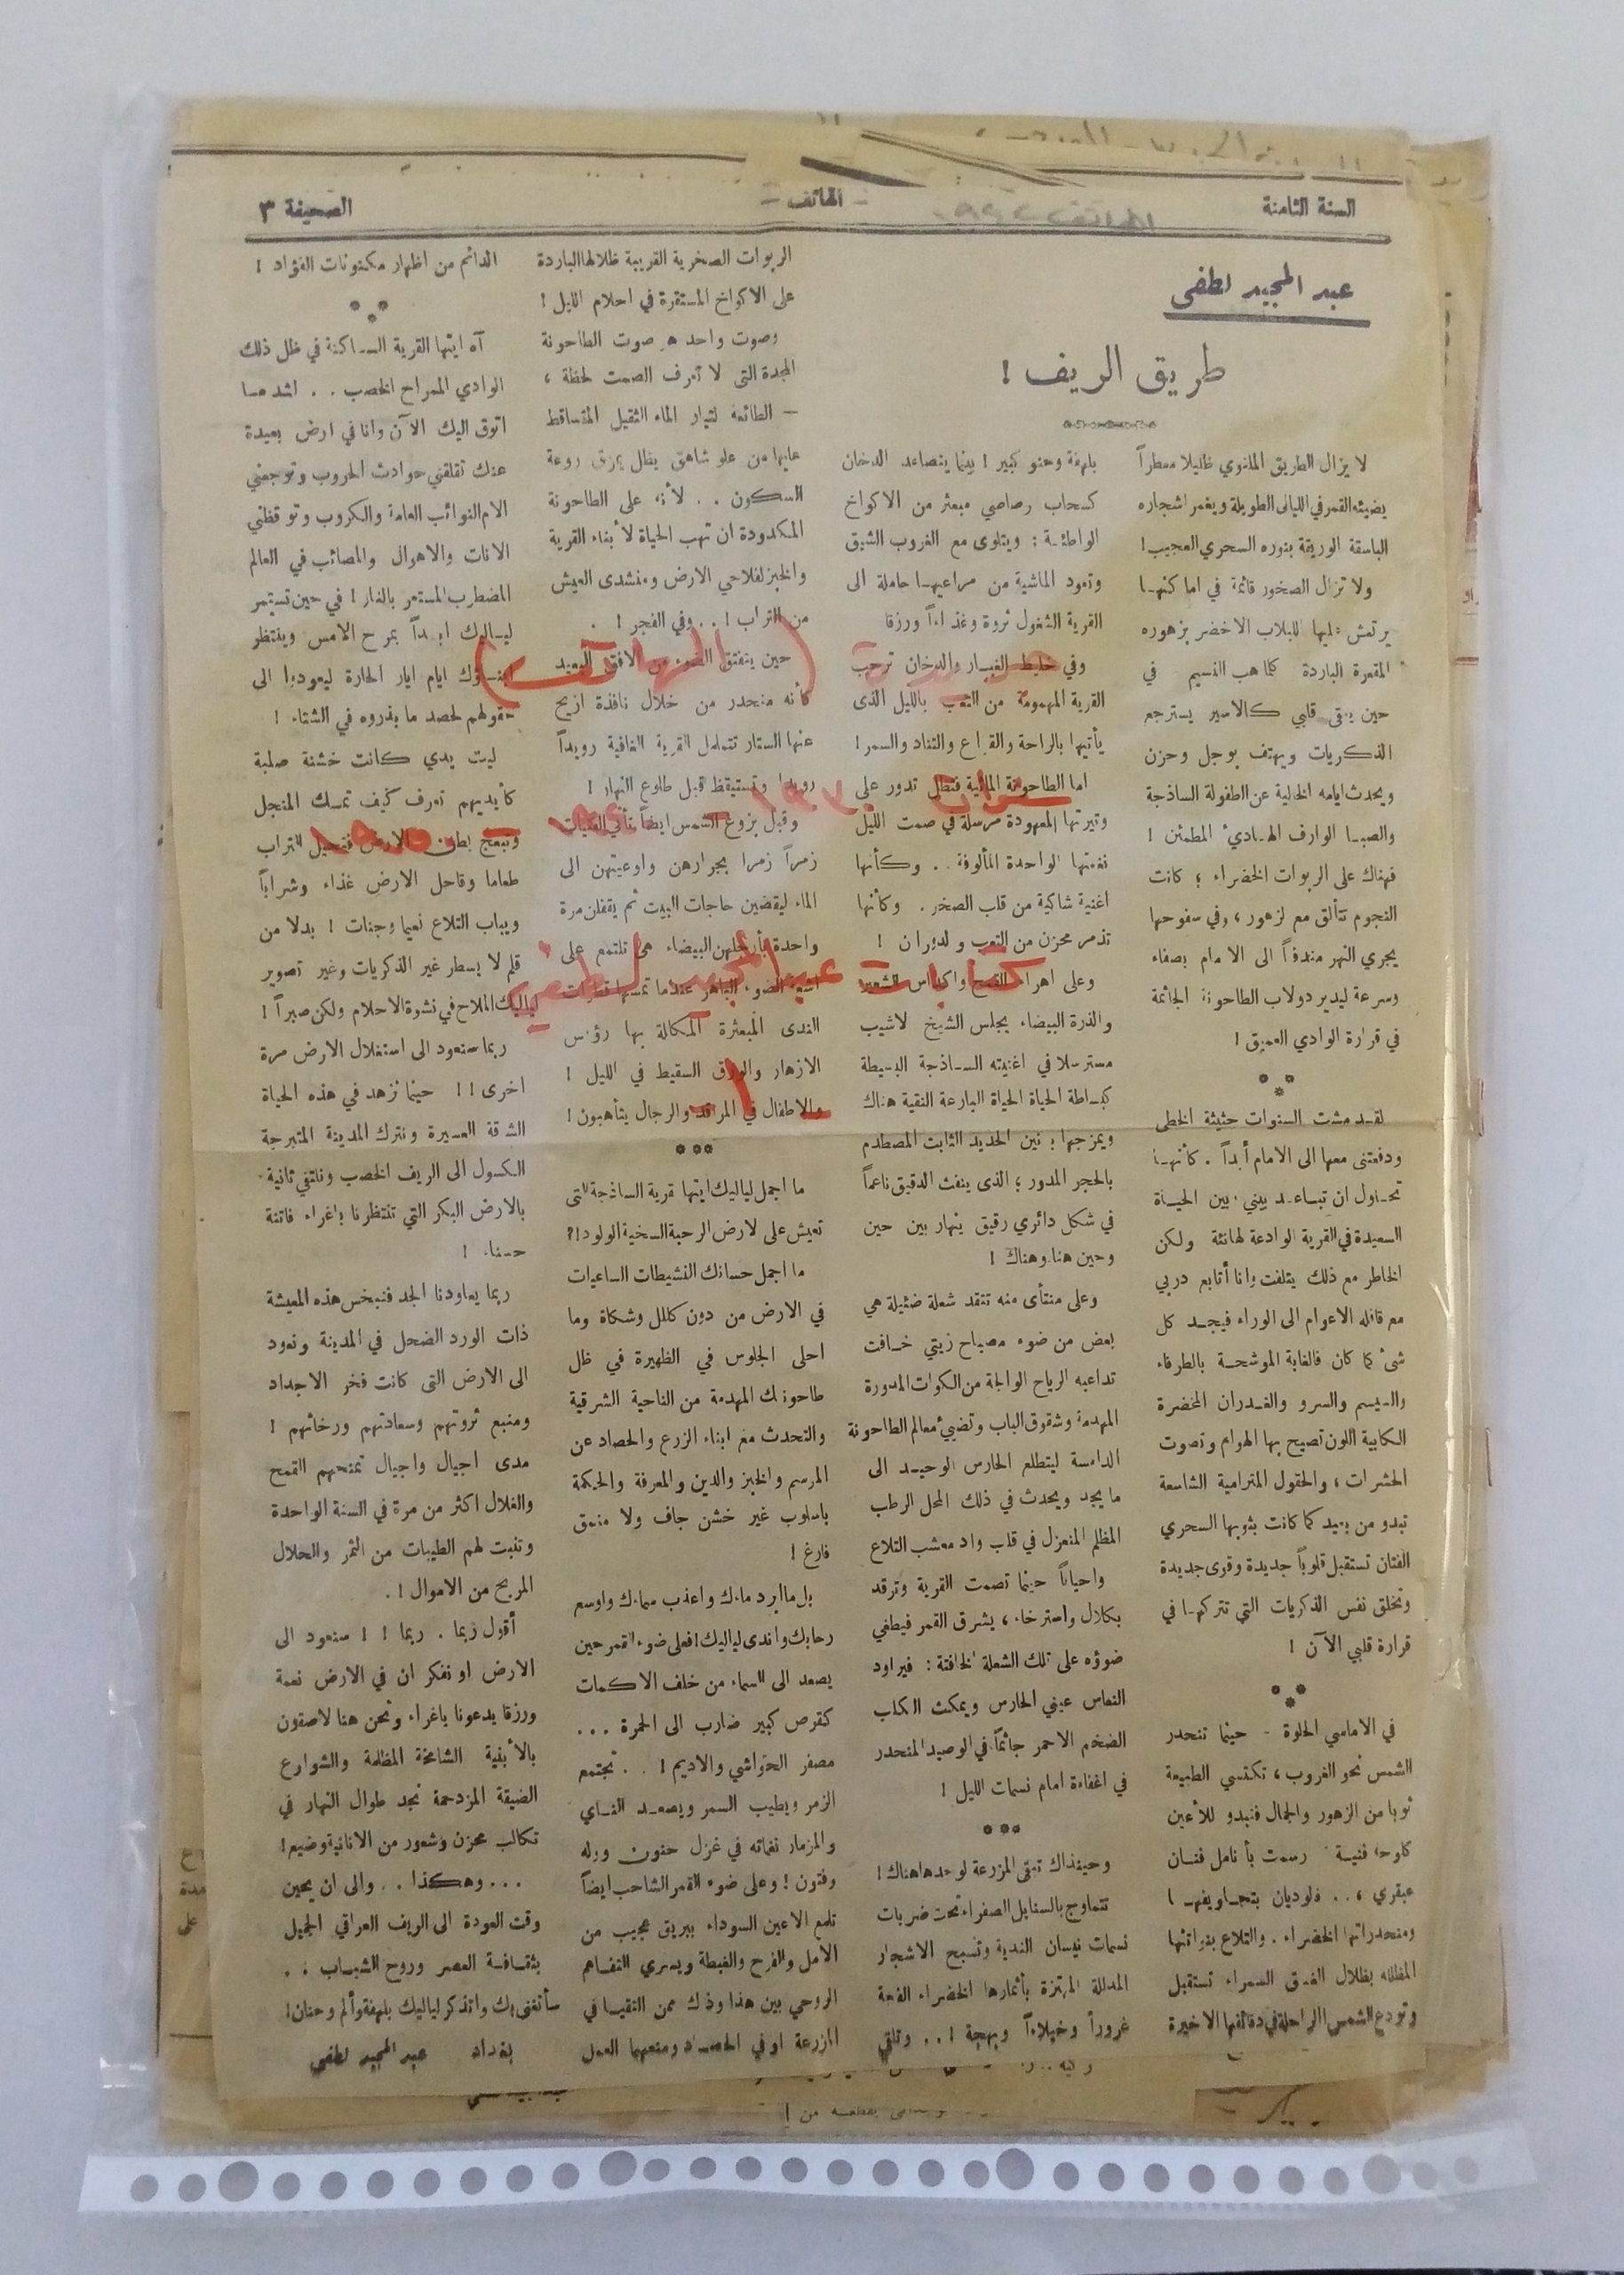 السنة الثامنة
- الهاتف -
الصحيفة ٣
عبد المجيد لطفي
طريق الريف !
لا يزال الطريق الملتوي ظليلا معطراً
يضيئه القمر في الليالى الطويلة ويغمر اشجاره
الباسقة الوريقة بنوره السحري العجيب !
ولا تزال الصخور قائمة في اماكنها
يرتعش عليها اللبلاب الاخضر بزهوره
المقعرة الباردة كلما هب النسيم في
حين يبقى قلبي كالاسير يسترجع
الذكريات ويهتف بوجل وحزن
ويحدث ايامه الخالية عن الطفولة الساذجة
والصبا الوارف الهادىء المطمئن !
فهناك على الربوات الخضراء ؛ كانت
النجوم تتألق مع لزهور ، وفي سفوحها
يجري النهر مندفعاً الى الامام بصفاء
وسرعة ليدير دولاب الطاحونة الجاثمة
في قرارة الوادي العميق !
لقد مشت السنوات حثيثة الخطى
ودفعتنى معها الى الامام أبداً . كأنها
تحاول ان تباعد بيني وبين الحياة
السعيدة في القرية الوادعة لهانئة ولكن
الخاطر مع ذلك يتلفت وانا أتابع دربي
مع قافله الاعوام الى الوراء فيجد كل
شىء كما كان فالغابة الموشحة بالطرفاء
والميسم والسرو والغدران المخضرة
الكابية اللون تصيح بها الهوام وتصوت
الحشرات ، والحقول المترامية الشاسعة
تبدو من بعيد كما كانت بثوبها السحري
الفتان تستقبل قلوباً جديدة وقوى جديدة
وتخلق نفس الذكريات التي تتركها في
قرارة قلبي الآن !
في الاماسي الحلوة - حينما تنحدر
الشمس نحو الغروب ، تكتسي الطبيعة
ثوبا من الزهور والجمال فتبدو للأعين
كلوحة فنية رسمت بأنامل فنان
عبقري ، .. فلوديان بتجاويفها
ومنحدراتها الخضراء . والتلاع
المظلله بظلال الغسق السمراء تستقبل
وتودع الشمس الراحلة في دقائقها الاخيرة
بلهفة وحنو كبير ! بينما يتصاعد الدخان
كسحاب رصاصي مبعثر من الاكواخ
الواطئة : ويتلوى مع الغروب الشيق
وتعود الماشية من مراعيها حاملة الى
القرية الشغول ثروة وغذاءاً ورزقا
وفي خليط الغبار والدخان ترحب
القرية المهمومة من التعب بالليل الذى
يأتيها بالراحة والقراع والتناد والسمر !
اما الطاحونة المائية فتظل تدور على
وتيرتها المعهودة مرسلة في صمت الليل
نغمتها الواحدة المألوفة .. وكأنها
اغنية شاكية من قلب الصخر . وكأنها
تذمر محزن من التعب و لدوران !
وعلى اهراء القمح واكداس الشعير
والذرة البيضاء يجلس الشيخ لاشيب
مسترسلا في اغنيته الساذجة البسيطة
كبساطة الحياة الحياة البارعة النقية هناك
ويمزجها بانين الحديد الثابت المصطدم
بالحجر المدور ؛ الذى ينفث الدقيق ناعماً
في شكل دائري رقيق ينهار بين حين
وحين هنا وهناك !
وعلى منتأى منه تتقد شعلة ضئيلة هي
بعض من ضوء مصباح زيتي خافت
تداعبه الرياح الوالجة من الكوات المدورة
المهدمة وشقوق الباب وتضيء معالم الطاحونة
الدامسة ليتطلع الحارس الوحيد الى
ما يجد ويحدث في ذلك المحل الرطب
المظلم المنعزل في قلب واد معشب التلاع
واحياناً حينما تصمت القرية وترقد
بكلال واسترخاء ، يشرق القمر فيطفي
ضوؤه على تلك الشعلة لخافتة : فيراود
النعاس عيني الحارس ويمكث الكلب
الضخم الاحمر جاثماً في الوصيد المنحدر
في اغفاءة امام نسمات الليل !
وحينذاك تبقى المزرعة لوحدها هناك !
تتماوج بالسنابل الصفراء تحت ضربات
نسمات نيسان الندية وتسبح الاشجار
المدللة المهتزة بأثمارها الخضراء الفجة
غروراً وخيلاءاً وبهجة ! .. وتلقي
الربوات الصخرية القريبة ظلالها الباردة
على الاكواخ المستقرة في احلام الليل !
وصوت واحد هو صوت الطاحونة
المجدة التى لا تعرف الصمت لحظة ،
— الطائعة لتيار الماء الثقيل المتساقط
عليها من علو شاهق يظل يمزق روعة
السكون .. لأن على الطاحونة
المكدودة ان تهب الحياة لأبناء القرية
والخبز لفلاحي الارض ومنشدى العيش
من التراب ! .. وفي الفجر ! .
حين يتفتق الضوء من الافق البعيد
كأنه منحدر من خلال نافذة ازيح
عنها الستار تتململ القرية الغافية رويداً
رويدا وتستيقظ قبل طلوع النهار !
وقبل بزوغ الشمس ايضا تأتي الفتيات
زمراً زمرا بجرارهن واوعيتهن الى
الماء ليقضين حاجات البيت ثم يقفلن مرة
واحدة بأرجلهن البيضاء هي تلتمع على
اشعة الضوء الباهر عندما تمسها قطرات
الندى المبعثرة المكالة بها رؤوس
الازهار والورق السقيط في الليل !
والاطفال في المراقد والرجال يتأهبون !
ما اجمل لياليك ايتها قرية الساذجة التى
تعيش على لارض الرحبة السخية الولود !؟
ما اجمل حسانك النشيطات الساعيات
في الارض من دون كلل وشكاة وما
احلى الجلوس في الظهيرة في ظل
طاحونك المهدمة من الناحية الشرقية
والتحدث مع ابناء الزرع والحصاد عن
المرسم والخبز والدين والمعرفة والحكمة
باسلوب غير خشن جاف ولا منمق
فارغ !
بل ما ابرد ماءك واعذب سماءك واوسع
رحابك واندى لياليك افعلى ضوء القمر حين
يصعد الى السماء من خلف الاكمات
كقرص كبير ضارب الى الحمرة ...
مصفر الحواشي والاديم ! .. تجتمع
الزمر ويطيب السمر ويصعد الناي
والمزمار نغماته في غزل حنون ووله
وفتون ! وعلى ضوء القمر الشاحب ايضاً
تلمع الاعين السوداء ببريق عجيب من
الامل والفرح والغبطة ويسري التفاهم
الروحي بين هذا وذاك ممن التقيا في
المزرعة او في الحصاد ومنعهما العمل
الدائم من اظهار مكنونات الفؤاد !
آه ايتها القرية الساكنة في ظل ذلك
الوادي الممراح الخصب .. اشد ما
اتوق اليك الآن وانا في ارض بعيدة
عنك تقلقني حوادث الحروب وتوجعني
الام النوائب العامة والكروب وتوقظني
الانات والاهوال والمصائب في العالم
المضطرب المستعر بالنار ! في حين تستمر
لياليك ابداً بمرح الامس وينتظر
ابناؤك ايام ايار الحارة ليعودوا الى
حقولهم لحصد ما بذروه في الشتاء !
ليت يدي كانت خشنة صلبة
كأيديهم تعرف كيف تمسك المنجل
وتبعج بطن الارض فتحيل التراب
طعاما وقاحل الارض غذاء وشراباً
ويباب التلاع نعيما وجنات ! بدلا من
قلم لا يسطر غير الذكريات وغير تصوير
لياليك الملاح في نشوة الاحلام ولكن صبراً !
ربما سنعود الى استغلال الارض مرة
اخرى !! حينما نزهد في هذه الحياة
الشقة العسيرة ونترك المدينة المتبرجة
الكسول الى الريف الخصب ونلتقي ثانية
بالارض البكر التي تنتظرنا باغراء فاتنة
حسناء !
ربما يعاودنا الجد فنبخس هذه المعيشة
ذات الورد الضحل في المدينة ونعود
الى الارض التى كانت فخر الاجداد
ومنبع ثروتهم وسعادتهم ورخائهم !
مدى اجيال واجيال تمنحهم القمح
والغلال اكثر من مرة في السنة الواحدة
وتنبت لهم الطيبات من الثمر والحلال
المربح من الاموال ! .
أقول ربما . ربما !! سنعود الى
الارض او نفكر ان في الارض نعمة
ورزقا يدعونا باغراء ونحن هنا لاصقون
بالأبنية الشامخة المظلمة والشوارع
الضيقة المزدحمة نجد طوال النهار في
تكالب محزن وشعور من الانانية وضيع !
... وهكذا .. والى ان يحين
وقت العودة الى الريف العراقي الجميل
بثقافة العصر وروح الشباب . .
سأتغنى بك واتذكر لياليك بلهفة وألم وحنان !
بغداد عبد المجيد لطفي
(الهاتف)
كتابات عبد المجيد لطفي